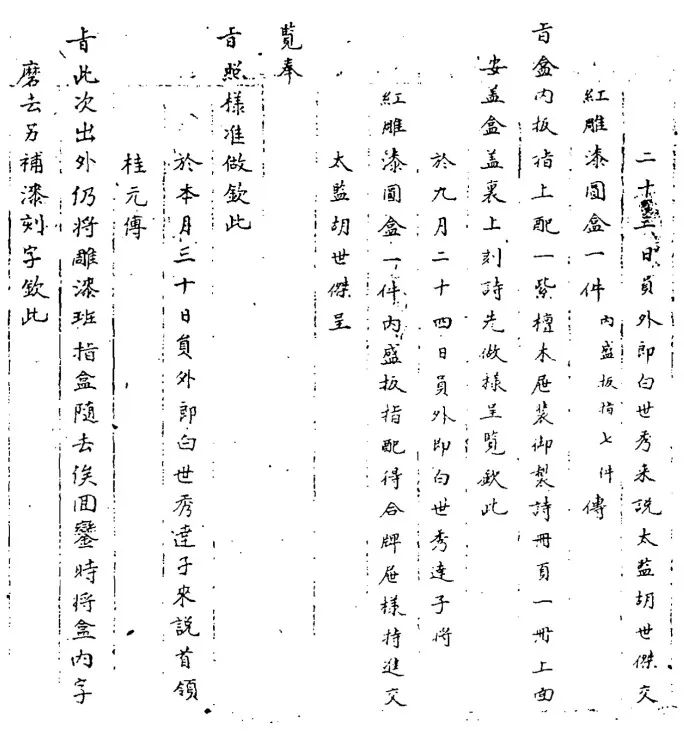 二十三日員外郎白世秀來說太監胡世傑交
紅雕漆圓盒一件內盛扳指七件傳
旨盒內扳指上配一紫檀木屜裝御製詩冊頁一冊上面
安蓋盒蓋裏上刻詩先做樣呈覽欽此
於九月二十四日員外郎白世秀達子將
紅雕漆圓盒一件內盛扳指配得合牌屜樣持進交
太監胡世傑呈
覽奉
旨照樣准做欽此
於本月三十日員外郎白世秀達子來說首領
桂元傳
旨此次出外仍將雕漆班指盒隨去俟回鑾時將盒內字
磨去另補漆刻字欽此